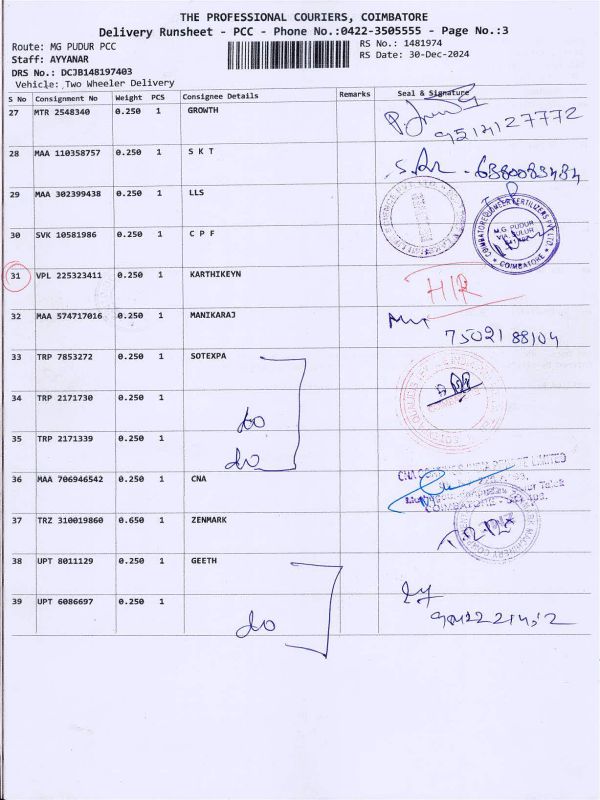 THE PROFESSIONAL COURIERS, COIMBATORE
Delivery Runsheet - PCC - Phone No.:0422-3505555 - Page No.:3
Route: MG PUDUR PCC
RS No.: 1481974
Staff: AYYANAR
RS Date: 30-Dec-2024
DRS No.: DCJB148197403
Vehicle: Two Wheeler Delivery
S No Consignment No Weight PCS Consignee Details Remarks Seal & Signature
27 MTR 2548340 0.250 1 GROWTH
9514127772
28 MAA 110358757 0.250 1 S K T
6380083484
29 MAA 302399438 0.250 1 LLS
30 SVK 10581986 0.250 1 C P F
M.G. PUDUR
COIMBATORE
31 VPL 225323411 0.250 1 KARTHIKEYN
32 MAA 574717016 0.250 1 MANIKARAJ
7502188104
33 TRP 7853272 0.250 1 SOTEXPA
34 TRP 2171730 0.250 1
do
35 TRP 2171339 0.250 1
do
36 MAA 706946542 0.250 1 CNA
COIMBATORE
37 TRZ 310019860 0.650 1 ZENMARK
38 UPT 8011129 0.250 1 GEETH
39 UPT 6086697 0.250 1
do